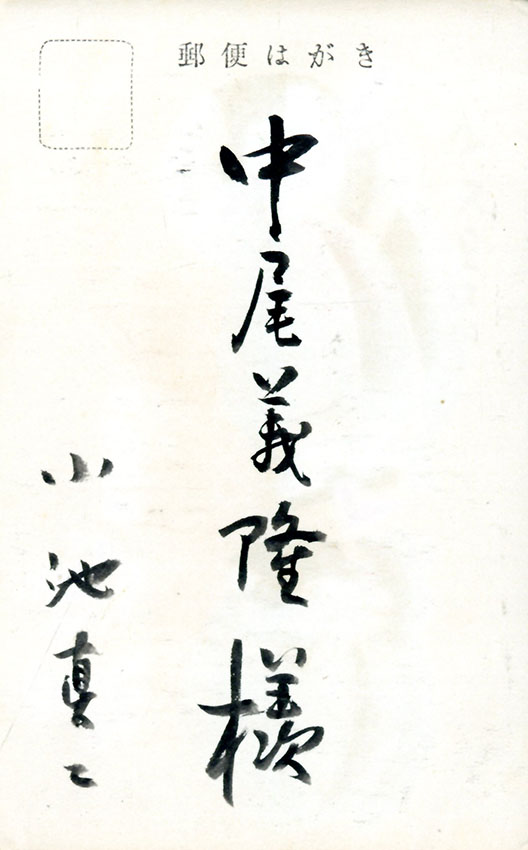 郵便はがき
中尾義隆様
小池真二